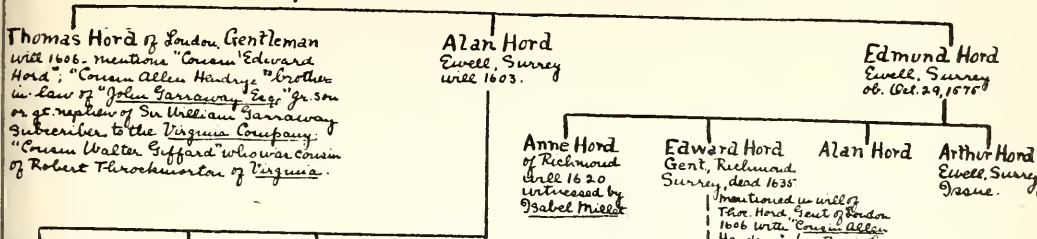 Thomas Hord of London, Gentleman
will 1606 - mentions "Cousin Edward
Hord"; "Cousin Allen Hendrye" brother
in-law of "John Garraway Esqr" gr. son
or gt. nephew of Sir William Garraway
Subscriber to the Virginia Company.
"Cousin Walter Giffard" who was cousin
of Robert Throckmorton of Virginia.
Alan Hord
Ewell, Surrey
will 1603.
Edmund Hord
Ewell, Surrey
ob. Oct. 29, 1575
Anne Hord
of Richmond
will 1620
witnessed by
Isabel Millet
Edward Hord
Gent., Richmond
Surrey, dead 1635
mentioned in will of
Thos. Hord Gent of London
1606 with "Cousin Allen
Alan Hord
Arthur Hord
Ewell, Surrey
Issue.